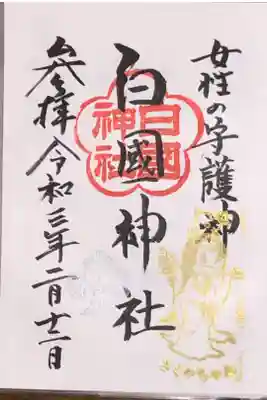 女性の守護神
白國神社
白國
神社
参拝 令和三年二月十二日